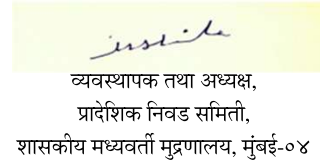 व्यवस्थापक तथा अध्यक्ष,
प्रादेशिक निवड समिती,
शासकीय मध्यवर्ती मुद्रणालय, मुंबई-०४